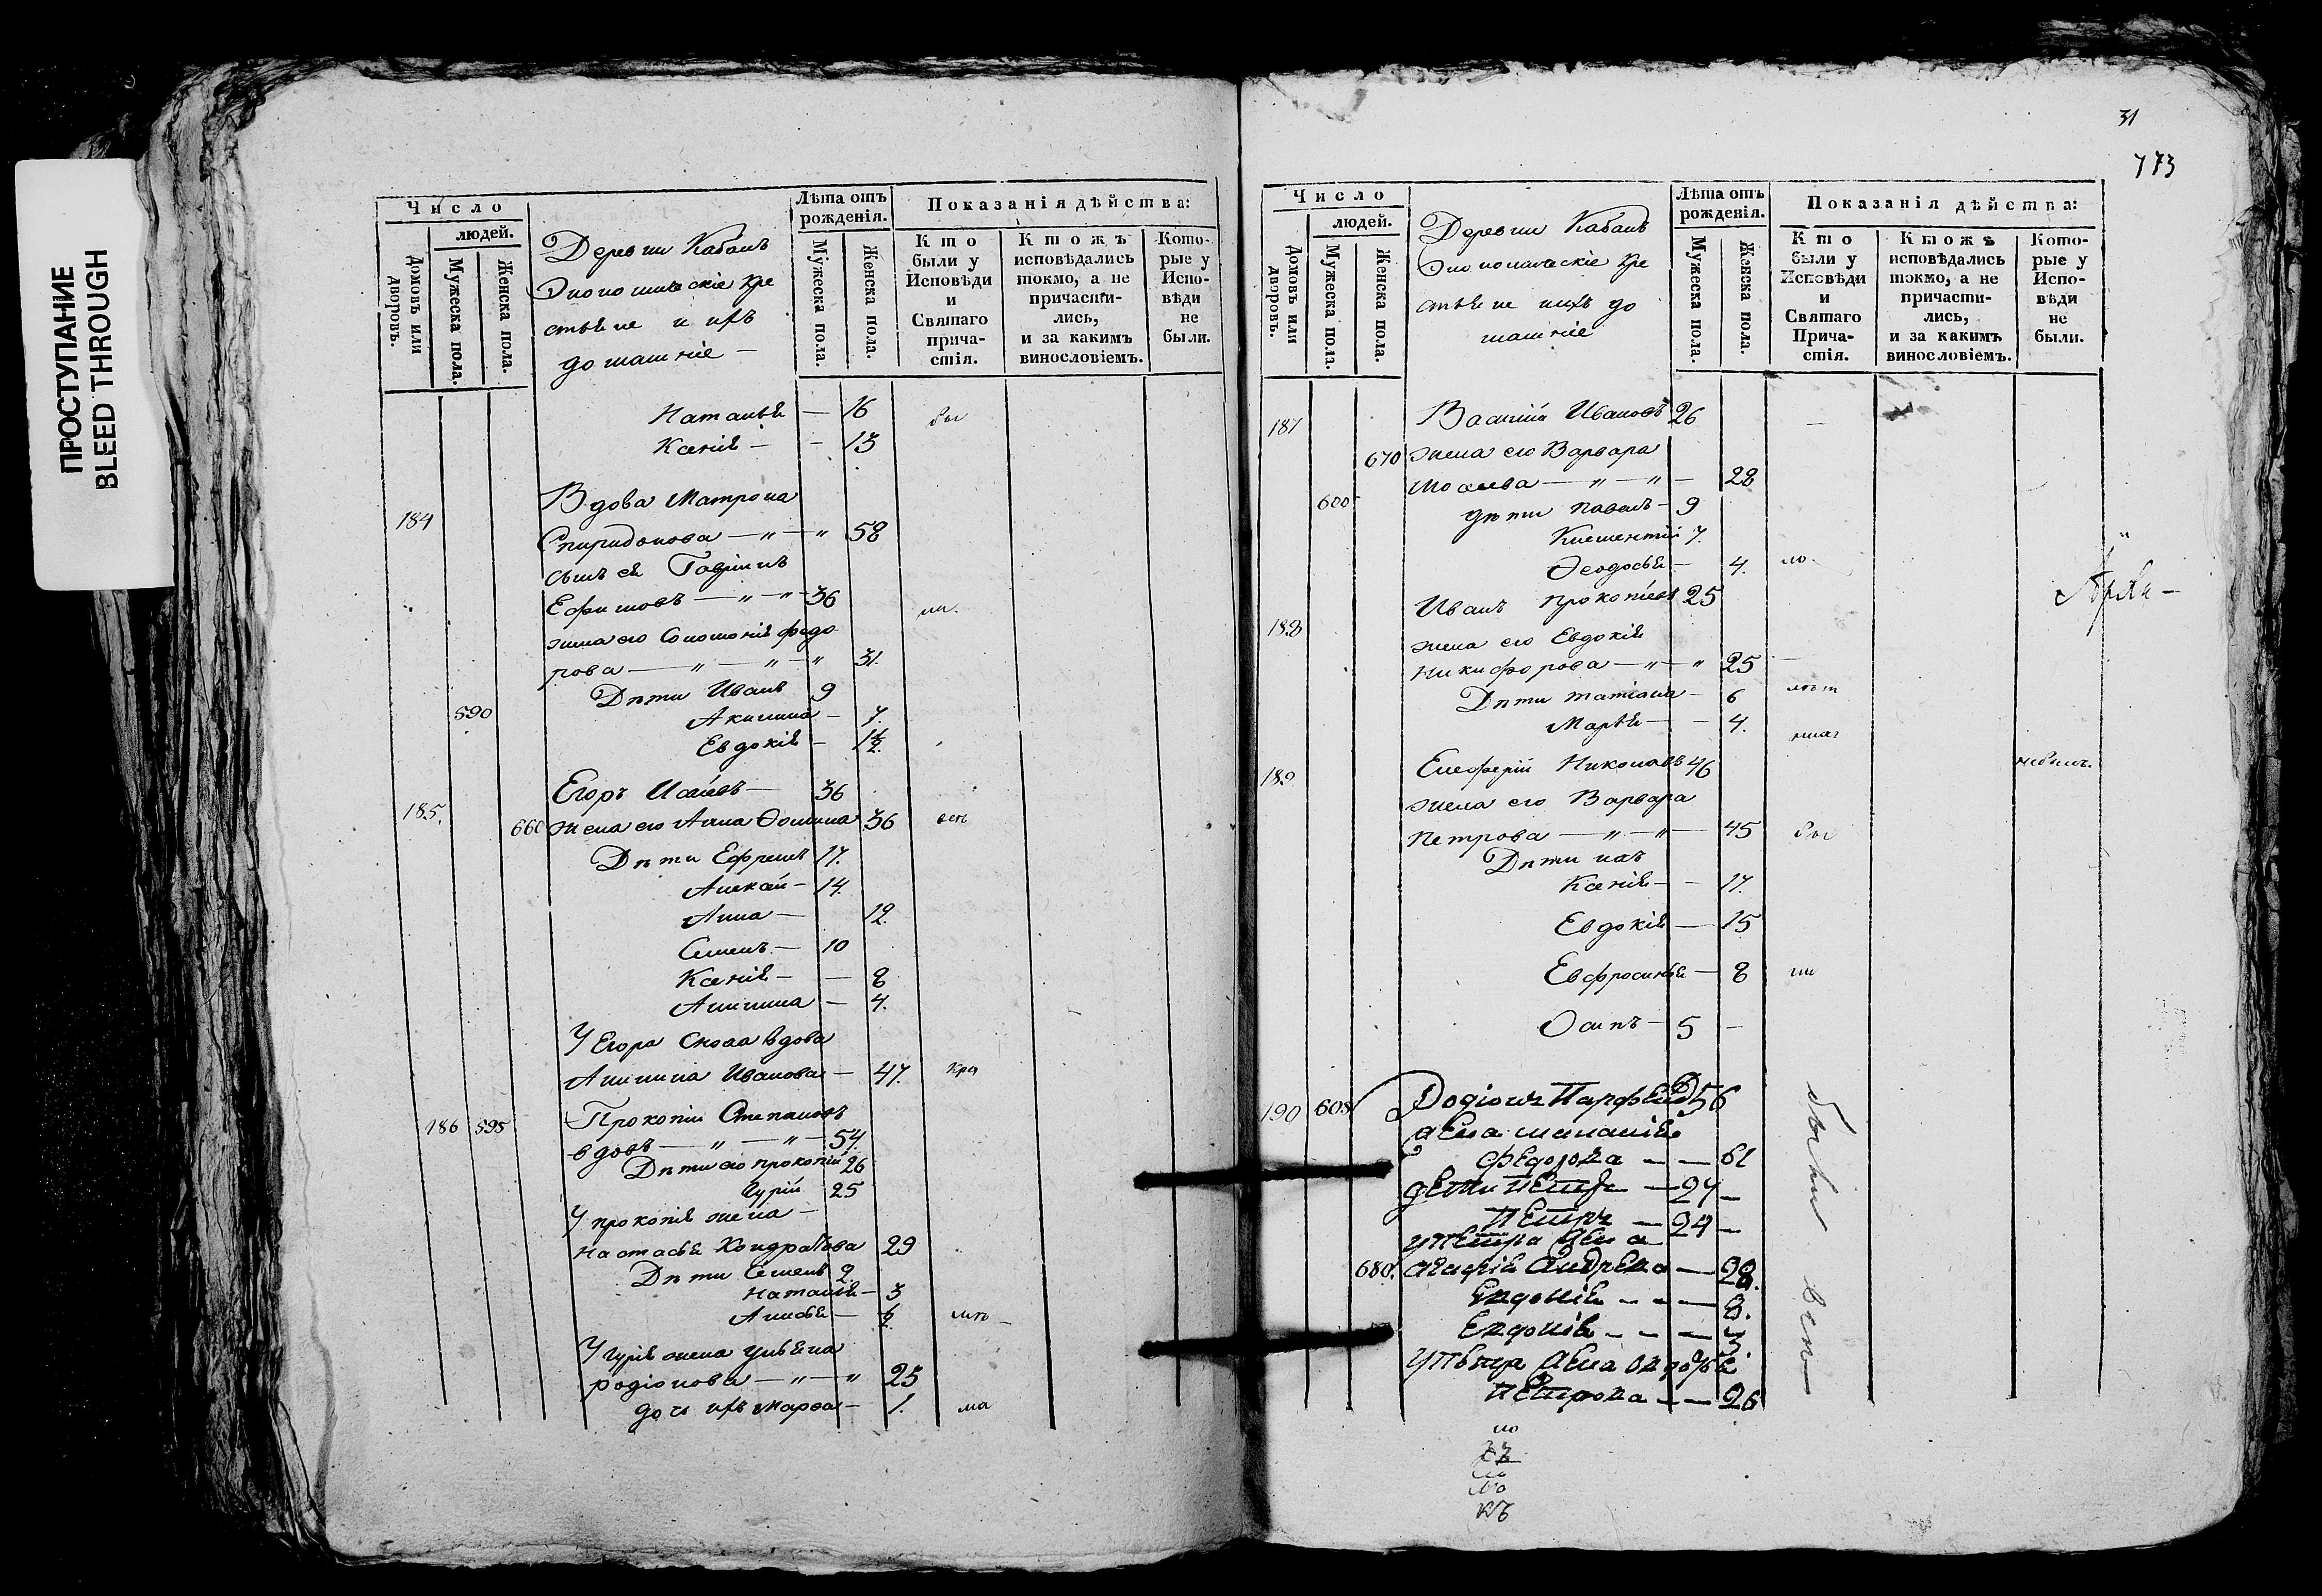 ПРОСТУПАНИЕ
BLEED THROUGH
Число
людей.
Домовъ или дворовъ.
Мужеска пола.
Женска пола.
Деревни Кабанъ
Экономическіе кре
стьяне и ихъ
домашніе —
Лѣта отъ рожденія.
Мужеска пола.
Женска пола.
Показанія дѣйства:
Кто были у Исповѣди и Святаго причастія.
Ктожъ исповѣдались токмо, а не причастились, и за какимъ винословіемъ.
Которые у Исповѣди не были.
Наталья — 16 бы
Ксенія — - 13
184 Вдова Матрона
Спиридонова — „ — „ 58
сынъ ея Гаврилъ
Ефимовъ — „ — „ 36
жена его Соломонія Федо
рова — „ — „ — „ 31.
Дѣти Иванъ 9
590 Акилина — 7.
Евдокія — 1½
185. Егоръ Исаевъ — 36
660 жена его Анна Фомина 36
Дѣти Ефремъ 17.
Алексѣй — 14.
Анна — 12.
Семенъ — 10
Ксенія — — 8
Акилина — 4.
У Егора сноха вдова
Акилина Иванова — 47.
186 595 Прокопій Степановъ
вдовъ — „ — „ — 54.
Дѣти его прокопій 26
Гурій 25
У прокопія жена —
Настасья Кондратова 29
Дѣти Семенъ 9.
Наталія — 3
Анисья — ½
У Гурія жена Ульяна
родіонова — „ — „ 25
дочь ихъ Марѳа — 1.
31
773
Число
людей.
Домовъ или дворовъ.
Мужеска пола.
Женска пола.
Деревни Кабанъ
Экономическіе кре
стьяне ихъ до
машніе
Лѣта отъ рожденія.
Мужеска пола.
Женска пола.
Показанія дѣйства:
Кто были у Исповѣди и Святаго Причастія.
Ктожъ исповѣдались токмо, а не причастились, и за какимъ винословіемъ.
Которые у Исповѣди не были.
187 Василій Ивановъ 26 —
670 жена его Варвара
— „ — „ — 28
600 дѣти Павелъ — 9
Климентій 7.
Ѳеодосья — 4.
188 Иванъ Прокопіевъ 25
жена его Евдокія
Никифорова — „ — „ 25
Дѣти Татіана — 6
Марья — - 4.
189 Елеферій Николаевъ 46 небылъ.
жена его Варвара
Петрова — „ — „ — 45 бы
Дѣти ихъ
Ксенія — - 17.
Евдокія — 15
Евфросинья — 8 ли
Осипъ — 5 —
190 605 Родіонъ Парфеновъ 56
жена меланія
федорова — — 61
дети петръ — 24 —
Петръ — 24 —
у петра жена
680. Андрева — 28.
Евдокія — — — 8.
Евдокія — — — 3
у петра жена авдотья
Петрова — — 26
были все